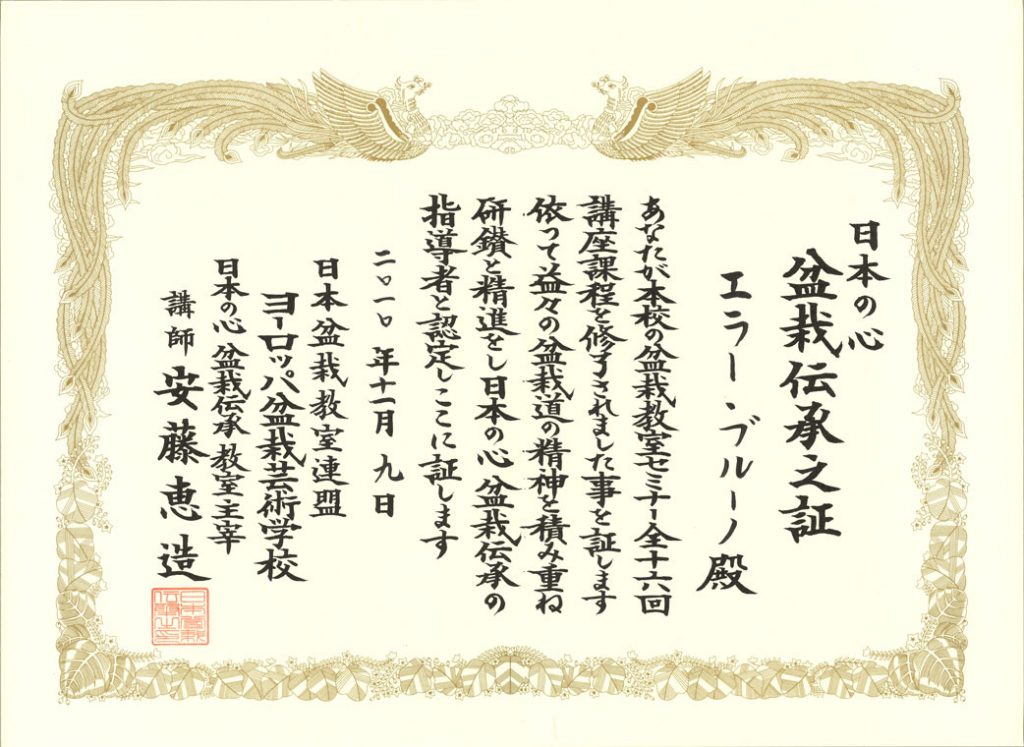 日本の心
盆栽伝承之証
エラー・ブルーノ殿
あなたが本校の盆栽教室セミナー全十六回
講座課程を修了されました事を証します
依って益々の盆栽道の精神を積み重ね
研鑚と精進をし日本の心盆栽伝承の
指導者と認定しここに証します
二〇一〇年十一月九日
日本盆栽教室連盟
ヨーロッパ盆栽芸術学校
日本の心盆栽伝承教室主宰
講師 安藤恵造